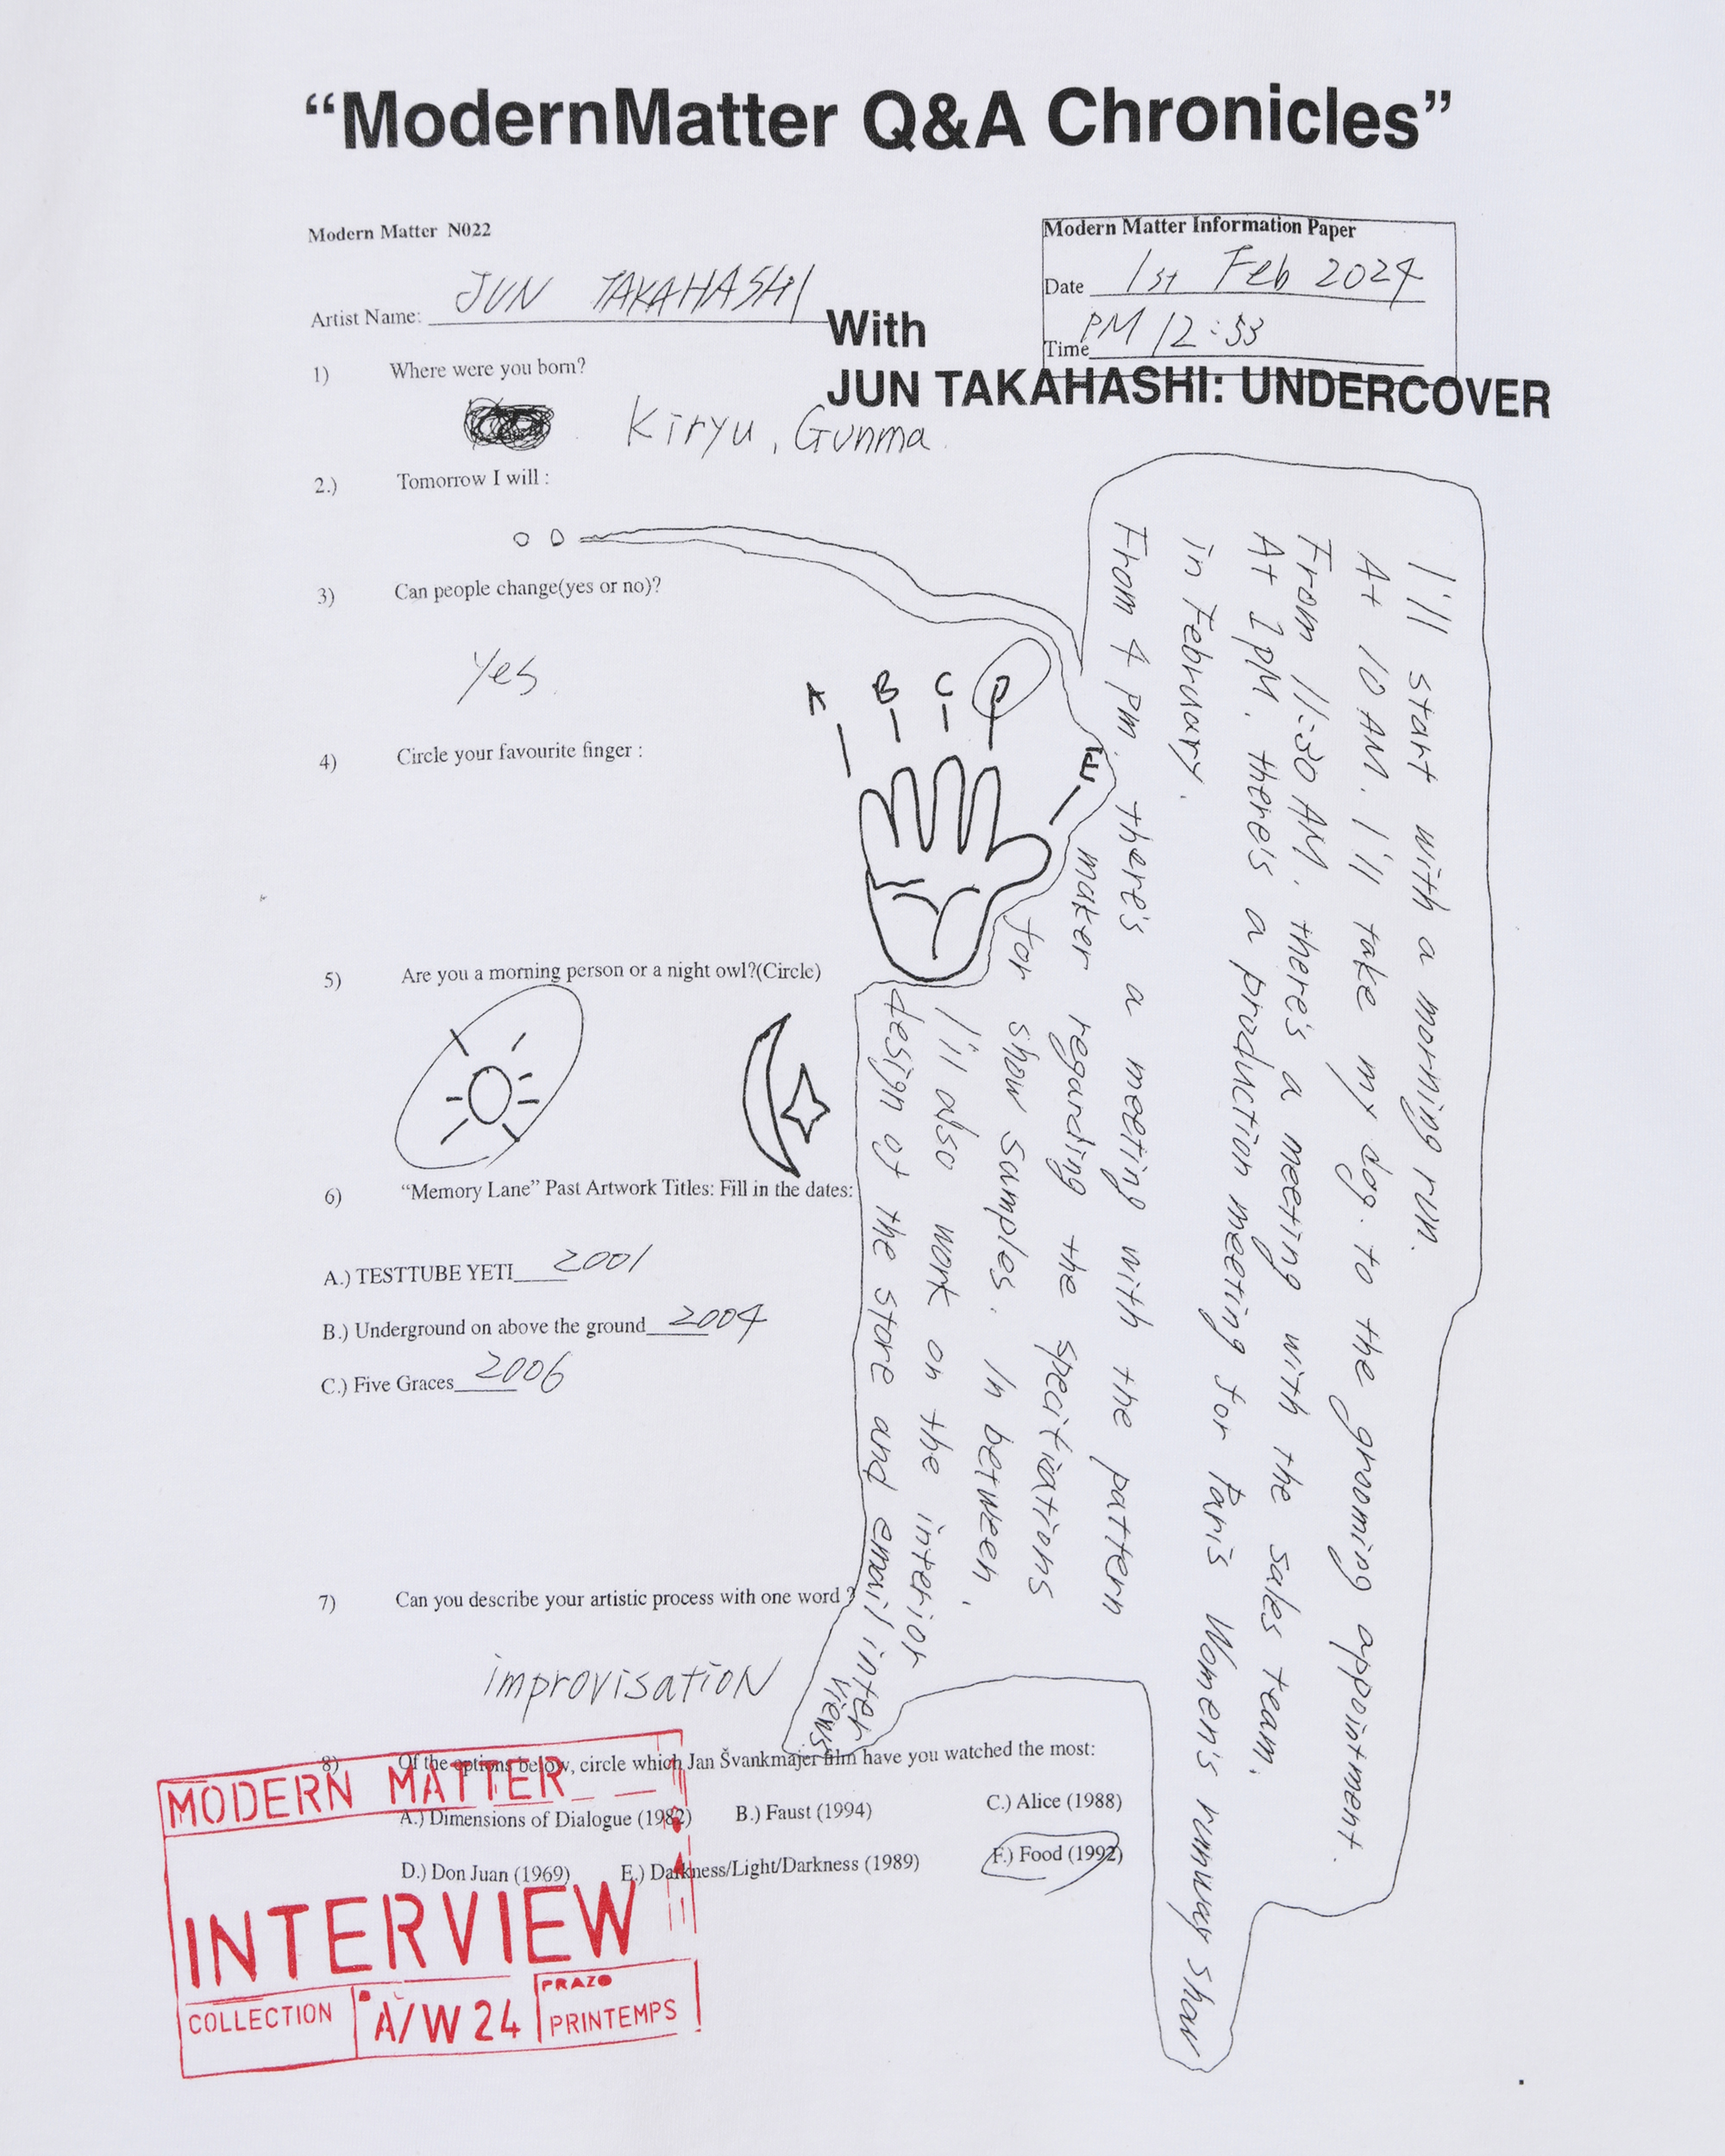 “ModernMatter Q&A Chronicles”
Modern Matter N022
Modern Matter Information Paper
Date 1st Feb 2024
Time PM 12:53
Artist Name: JUN TAKAHASHI
With
JUN TAKAHASHI: UNDERCOVER
1) Where were you born?
Kiryu, Gunma.
2.) Tomorrow I will :
I'll start with a morning run.
At 10 AM. I'll take my dog. to the grooming appointment.
From 11:30 AM, there's a meeting with the sales team.
At 2 PM, there's a production meeting for Paris Women's runway show
in February.
From 4 pm, there's a meeting with the pattern
maker regarding the specifications
for show samples. In between,
I'll also work on the interior
design of the store and email inter
views
3) Can people change(yes or no)?
Yes.
4) Circle your favourite finger :
A B C D E
5) Are you a morning person or a night owl?(Circle)
6) “Memory Lane” Past Artwork Titles: Fill in the dates:
A.) TESTTUBE YETI 2001
B.) Underground on above the ground 2004
C.) Five Graces 2006
7) Can you describe your artistic process with one word ?
improvisation
8) Of the options below, circle which Jan Švankmajer film have you watched the most:
A.) Dimensions of Dialogue (1982) B.) Faust (1994) C.) Alice (1988)
D.) Don Juan (1969) E.) Darkness/Light/Darkness (1989) F.) Food (1992)
MODERN MATTER
INTERVIEW
COLLECTION A/W 24 PRAZO
PRINTEMPS